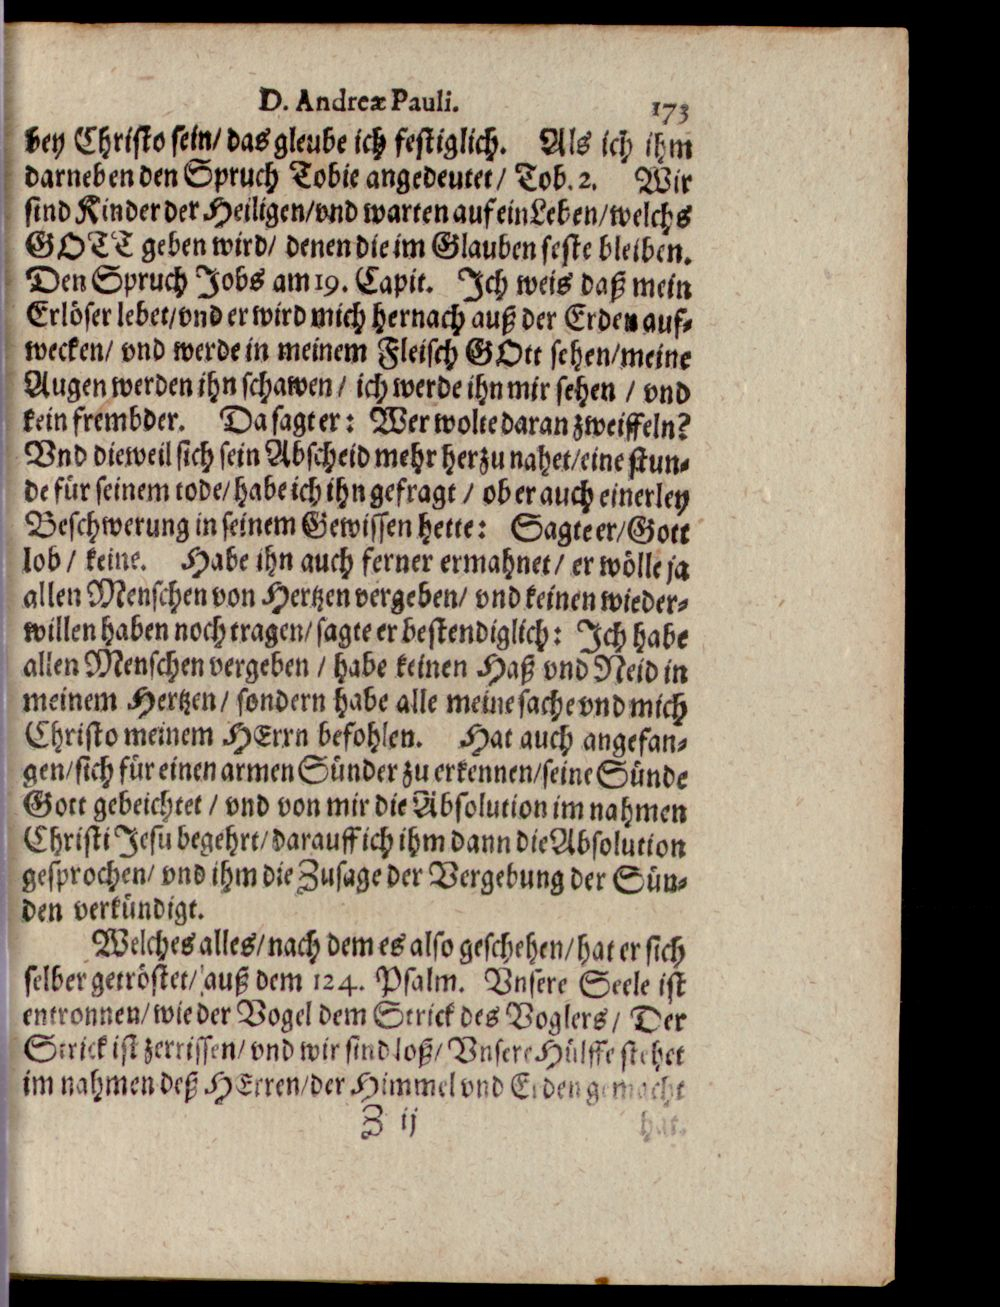 D. Andreæ Pauli. 173
bey Christo sein/ das gleube ich festiglich. Als ich ihm
darneben den Spruch Tobie angedeutet/ Tob. 2. Wir
sind Kinder der Heiligen/vnd warten auf ein Leben/welchs
GOTT geben wird/ denen die im Glauben feste bleiben.
Den Spruch Jobs am 19. Capit. Ich weis daß mein
Erlöser lebet/vnd er wird mich hernach auß der Erden auf-
wecken/ vnd werde in meinem Fleisch GOtt sehen/meine
Augen werden ihn schawen/ ich werde ihn mir sehen / vnd
kein frembder. Da sagt er: Wer wolte daran zweiffeln?
Vnd dieweil sich sein Abscheid mehr herzu nahet/eine stun-
de für seinem tode/ habe ich ihn gefragt / ob er auch einerley
Beschwerung in seinem Gewissen hette: Sagte er/Gott
lob/ keine. Habe ihn auch ferner ermahnet/ er wölle ja
allen Menschen von Hertzen vergeben/ vnd keinen wieder-
willen haben noch tragen/ sagte er bestendiglich: Ich habe
allen Menschen vergeben / habe keinen Haß vnd Neid in
meinem Hertzen/ sondern habe alle meine sache vnd mich
Christo meinem HErrn befohlen. Hat auch angefan-
gen/sich für einen armen Sünder zu erkennen/seine Sünde
Gott gebeichtet / vnd von mir die Absolution im nahmen
Christi Jesu begehrt/darauff ich ihm dann die Absolution
gesprochen/ vnd ihm die Zusage der Vergebung der Sün-
den verkündigt.
Welches alles/nach dem es also geschehen/hat er sich
selber getröstet/ auß dem 124. Psalm. Vnsere Seele ist
entronnen/wie der Vogel dem Strick des Voglers/ Der
Strick ist zerrissen/ vnd wir sind loß/ Vnsere Hülffe stehet
im nahmen deß HErren/der Himmel vnd Erden gemacht
Z ij hat.